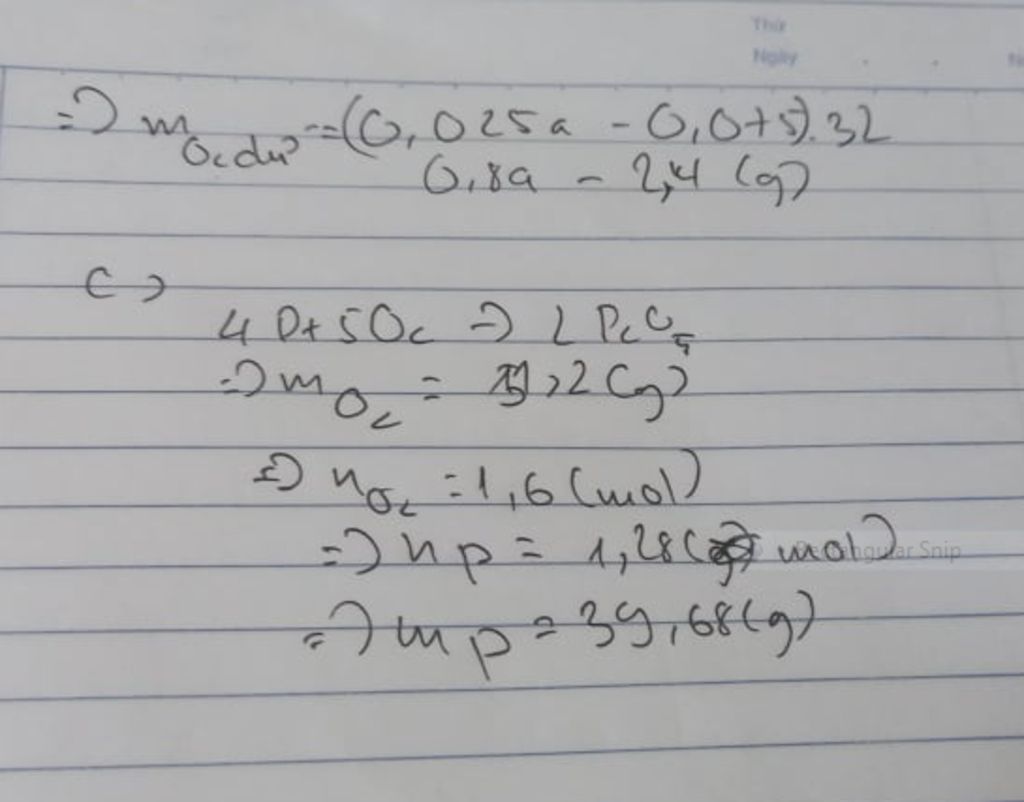 Thứ
Ngày
=> m O₂ dư = (0,025a - 0,075).32
0,8a - 2,4 (g)
c>
4P + 5O₂ -> 2P₂O₅
=> m O₂ = 51,2 (g)
=> n O₂ = 1,6 (mol)
=> n p = 1,28 (mol)
=> m p = 39,68 (g)
gular Snip